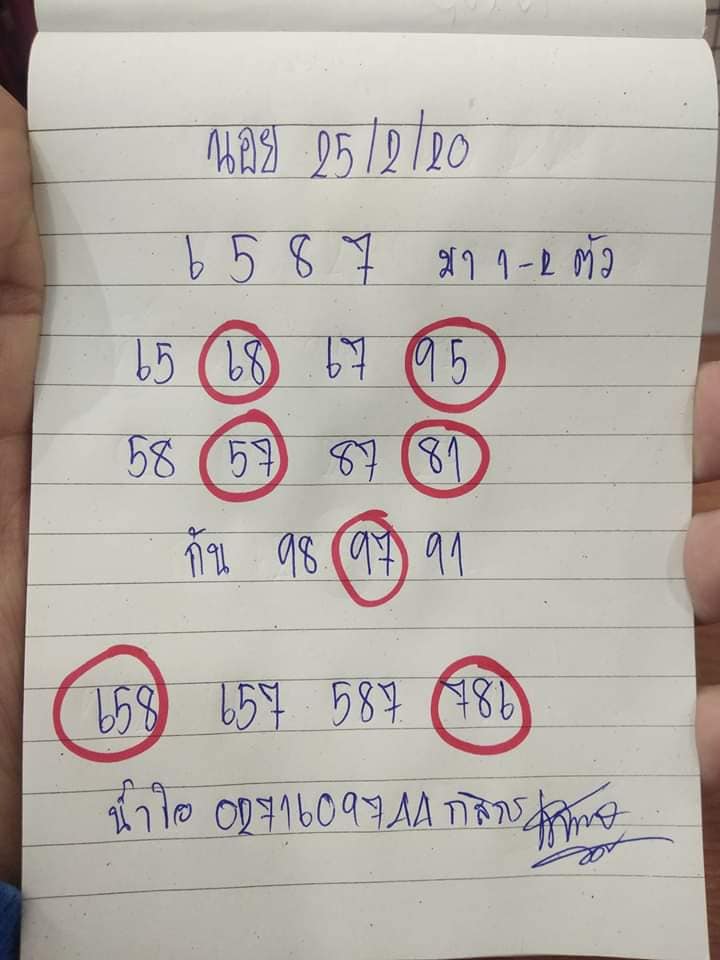 นอย 25/2/20
6 5 8 7 มา 1-2 ตัว
65 68 67 95
58 57 87 81
กัน 98 97 91
658 657 587 786
น้ำใจ 0271609744 กสิกร